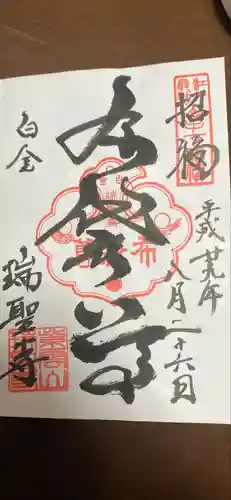 招福
平成廿九年
八月二十六日
布袋尊
白金
瑞聖寺